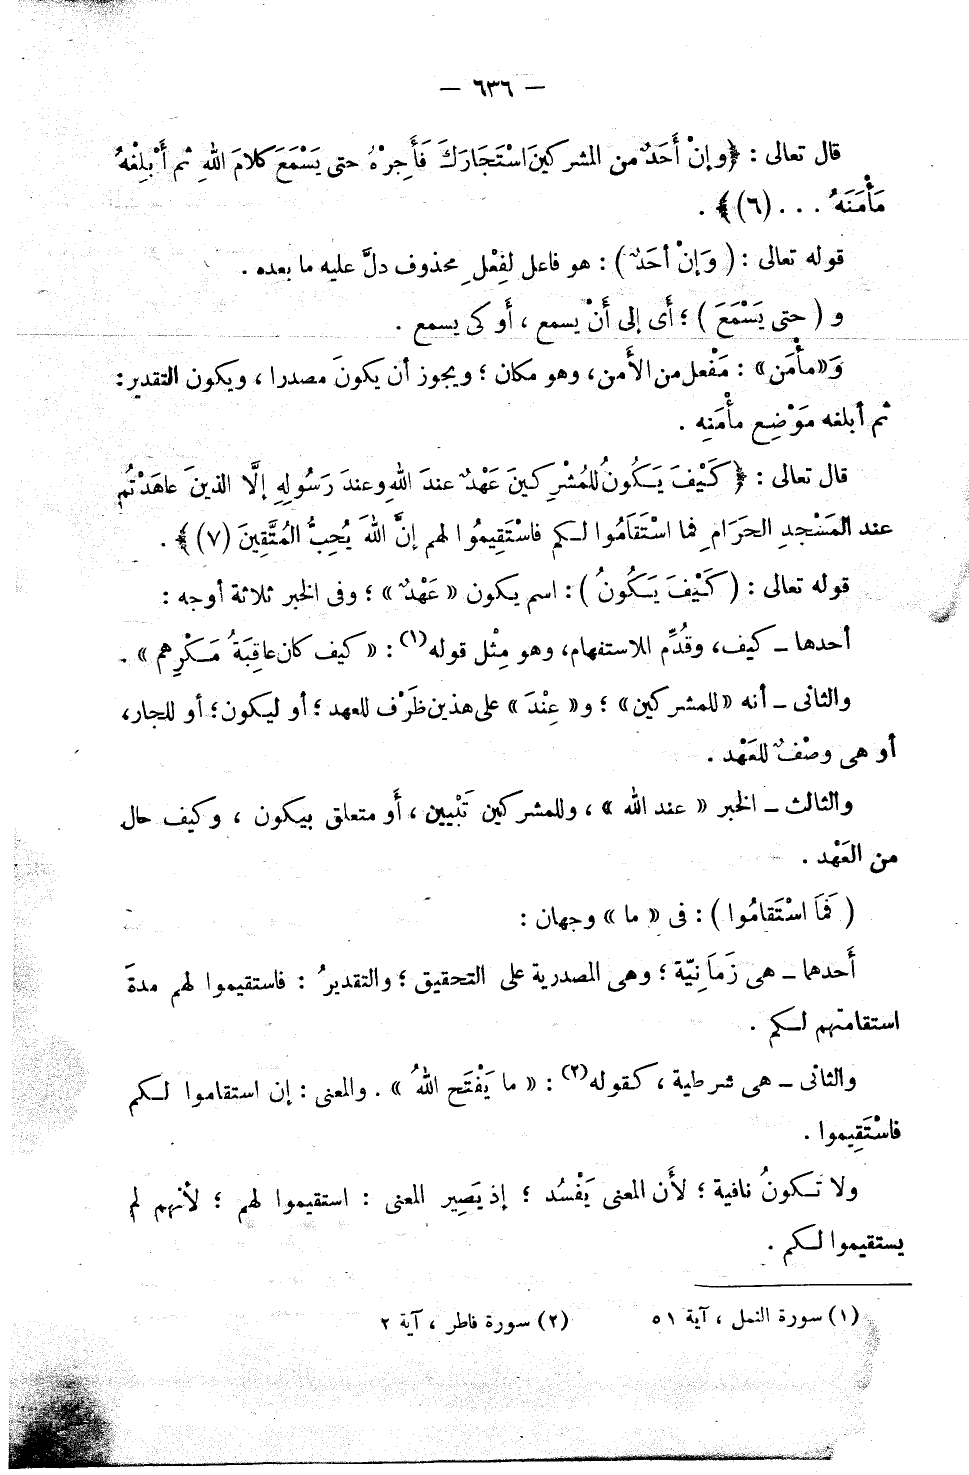 — ٦٣٦ —
قال تعالى : ﴿وإنْ أَحَدٌ من المشركينَ اسْتَجَارَكَ فَأَجِرْهُ حتى يَسْمَعَ كلامَ اللهِ ثم أَبْلِغْهُ
مَأْمَنَهُ . . . (٦)﴾ .
قوله تعالى : ( وَإنْ أحَدٌ ) : هو فاعل لفِعْلٍ محذوف دلَّ عليه ما بعده .
و ( حتى يَسْمَعَ ) ؛ أَى إلى أَنْ يسمع ، أَو كى يسمع .
وَ«مأْمَن» : مَفْعل من الأَمن، وهو مكان ؛ ويجوز أن يكونَ مصدرا ، ويكون التقدير:
ثم أبلغه مَوْضِع مأْمَنِه .
قال تعالى : ﴿ كَيْفَ يَكُونُ للمُشْرِكينَ عَهْدٌ عندَ اللهِ وعندَ رَسُولِهِ إلَّا الذينَ عاهَدْتُم
عند المَسْجدِ الحَرَامِ فما اسْتَقَامُوا لكم فاسْتَقِيمُوا لهم إنَّ اللهَ يُحِبُّ المُتَّقِينَ (٧)﴾ .
قوله تعالى : ( كَيْفَ يَكُونُ ) : اسم يكون « عَهْدٌ » ؛ وفى الخبر ثلاثة أوجه :
أحدها ـ كيف، وقُدِّم للاستفهام، وهو مِثْل قوله(١) : « كيف كان عاقِبَةُ مَكْرِهم » .
والثانى ـ أنه «للمشركين» ؛ و« عِنْدَ » على هذين ظَرْف للعهد ؛ أو ليكون؛ أو للجار،
أو هى وصْفٌ للعَهْد .
والثالث ـ الخبر « عند الله » ، وللمشركين تَبْيين ، أَو متعلق بيكون ، وكيف حال
من العَهْد .
( فَمَا اسْتَقامُوا ) : فى « ما » وجهان :
أَحدهما ـ هى زَمَانِيّة ؛ وهى المصدرية على التحقيق ؛ والتقديرُ : فاستقيموا لهم مدةَ
استقامتهم لكم .
والثانى ـ هى شرطية ، كقوله(٢) : « ما يَفْتَح اللهُ » . والمعنى : إن استقاموا لكم
فاسْتَقِيموا .
ولا تكونُ نافية ؛ لأَن المعنى يَفْسُد ؛ إذ يَصِير المعنى : استقيموا لهم ؛ لأنهم لم
يستقيموا لكم .
(١) سورة النمل ، آية ٥١
(٢) سورة فاطر ، آية ٢